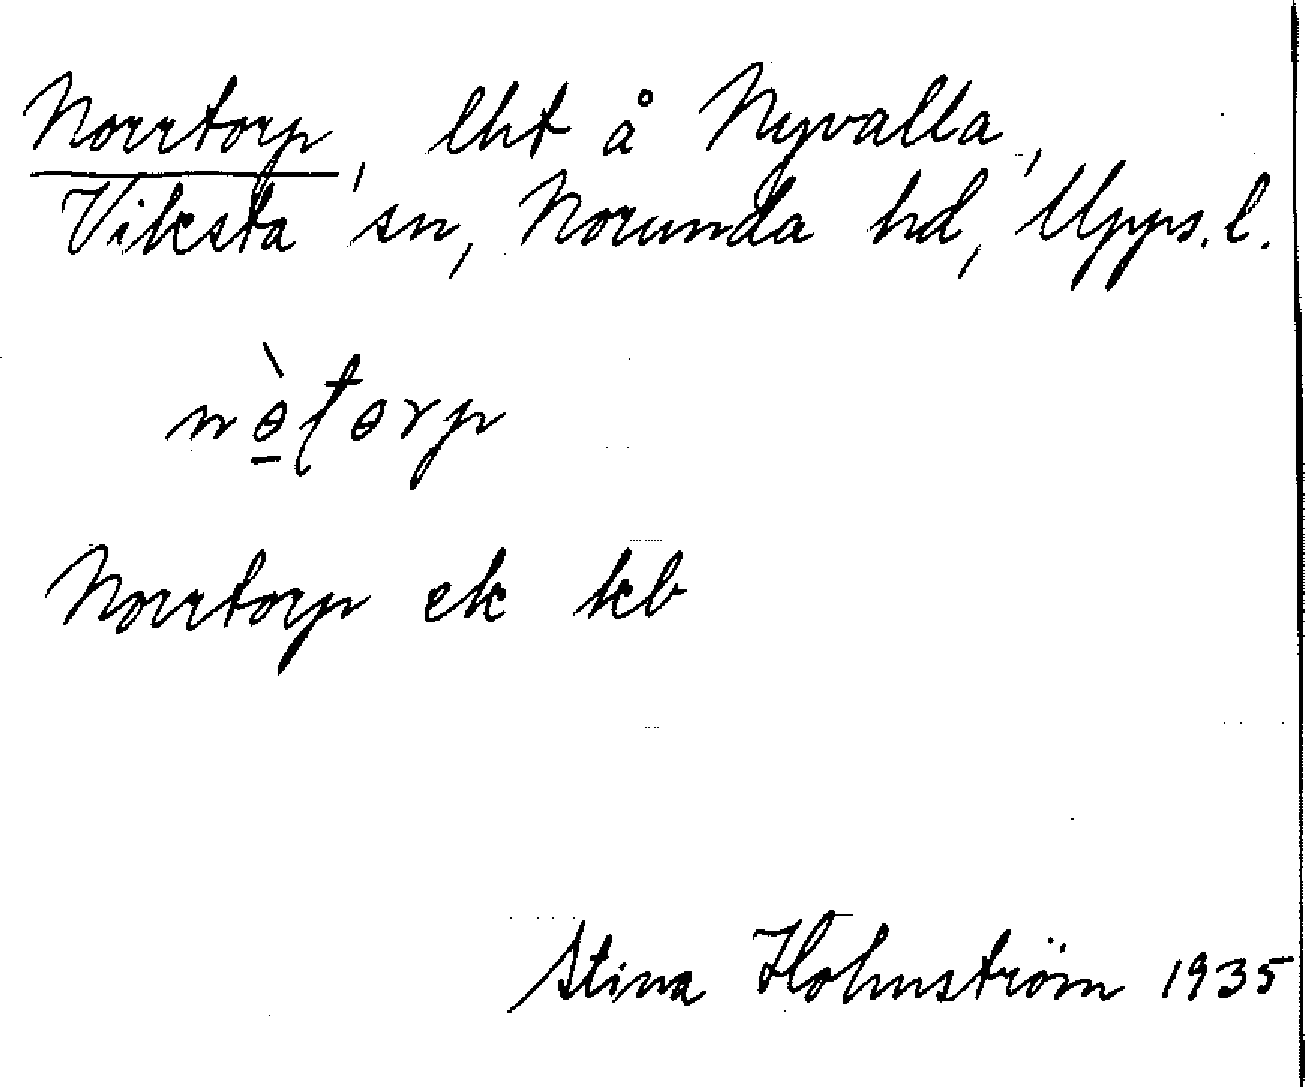 Norrtorp, lht å Nyvalla,
Viksta sn, Norunda hd, Upps. l.
nɵ̀ʈɵrp
Norrtorp ek kb
Stina Holmström 1935